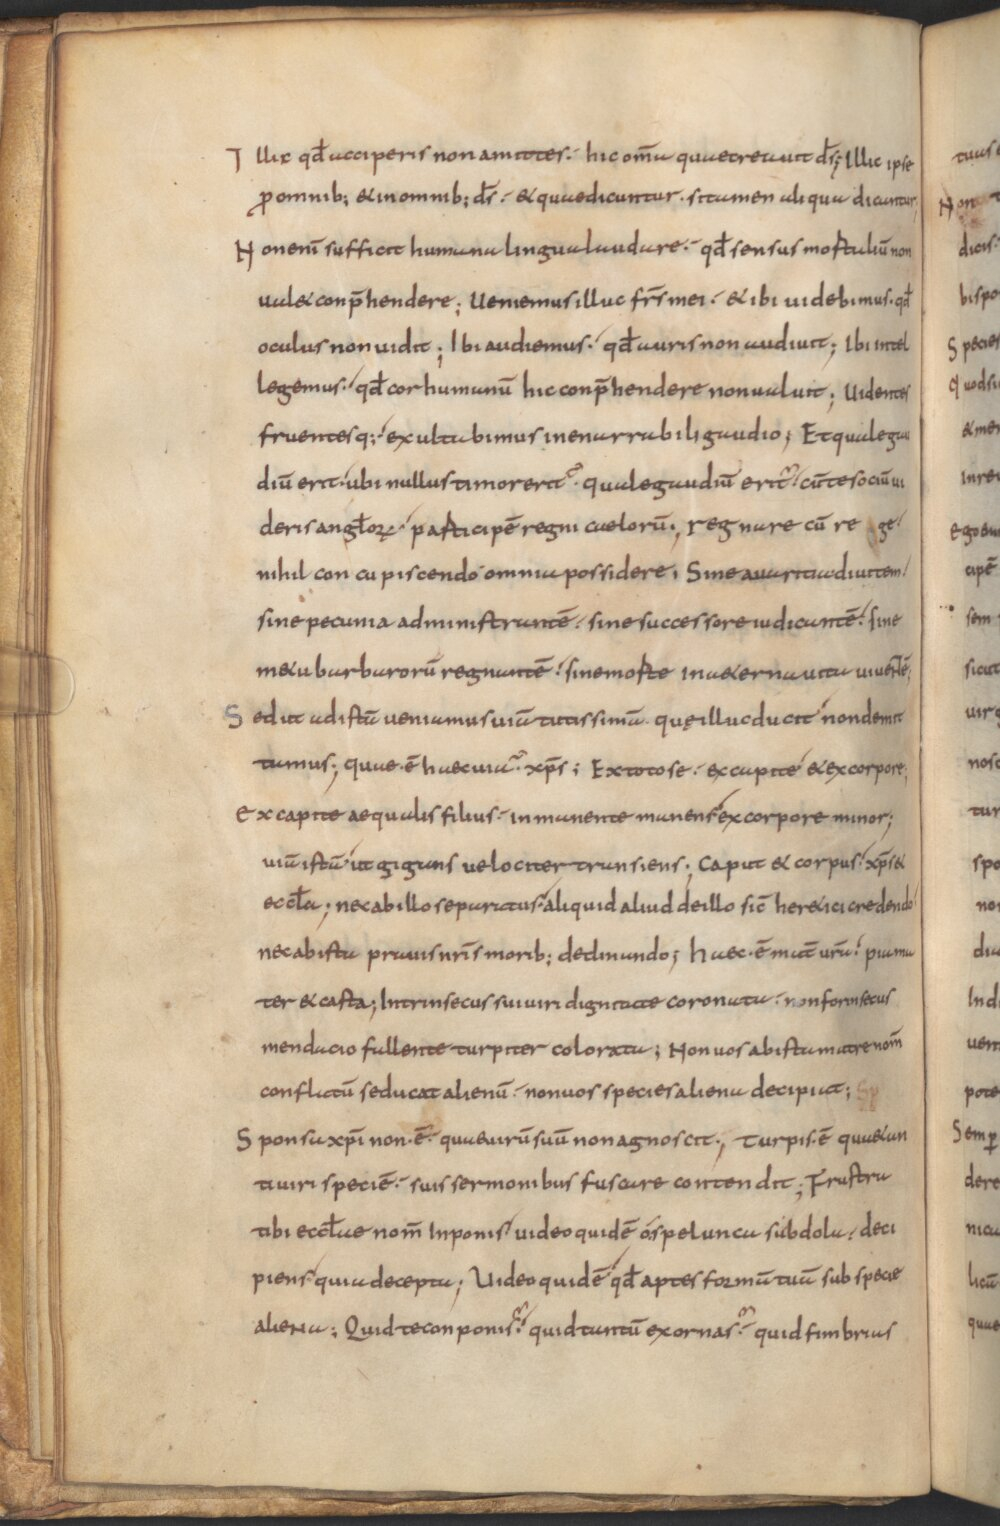 Illic qđ acciperis non amittes · hic om̄a quae creauit d̄s; Illic ipse
ꝓ omnib; & in omnib; d̄s · & quae dicuntur · si tamen aliqua dicantur;
Non enī sufficit humana lingua laudare · qđ sensus mortaliū non
ual& conp̄hendere; Ueniemus illuc fr̄s mei · & ibi uidebimus · qđ
oculus non uidit; Ibi audiemus · qđ auris non audiuit; Ibi intel
legemus · qđ cor humanū hic conp̄hendere non ualuit; Uidentes
fruentesq; · exultabimus inenarrabili gaudio; Et quale gau
diū erit · ubi nullus timor erit · quale gaudiū erit · cū te sociū ui
deris angłoꝝ · participē regni caelorū; regnare cū re ge
nihil concupiscendo omnia possidere; Sine auaritia diuitem
sine pecunia administrantē · sine successore iudicantē · sine
m&u barbarorū regnantē · sine morte in a&erna uita uiuentē;
Sed ut ad istū ueniamus uiā tutissimā · quę illuc ducit non demit
tamus; quae · ē haec uia · xp̄s; Ex toto se · ex capite & ex corpore;
Ex capite aequalis filius · in manente manens ex corpore minor;
uiā istū ut gigans uelociter transiens; Caput & corpus · xp̄s &
eccła; nec ab illo separatus aliquid aliud de illo sic̄ her&ici credendo
nec ab ista prauis nr̄is morib; declinando; haec · ē mat̄ ur̄a · pia ma
ter & casta; Intrinsecus sui uiri dignitate coronata · non forinsecus
mendacio fallente turpiter colorata; Non uos ab ista matre nom̄
conflictū seducat alienū · non uos species aliena decipiat;
Sponsa xp̄i non · ē · quae uirū suū non agnoscit; Turpis · ē quae tan
ti uiri speciē · suis sermonibus fuscare contendit; Frustra
tibi eccłae nom̄ inponis uideo quidē o spelunca subdola · deci
piens quia decepta; Uideo quidē qđ aptes formā tuā sub specie
aliena; Quid te conponis · quid tantū exornas · quid fimbrias